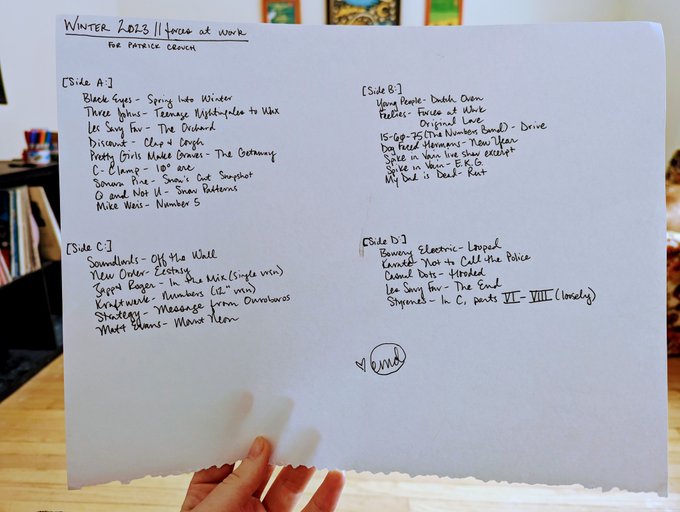 WINTER 2023 || forces at work
FOR PATRICK CROUCH
[Side A:]
Black Eyes - Spring Into Winter
Three Johns - Teenage Nightingales to Wax
Les Savy Fav - The Orchard
Discount - Clap + Cough
Pretty Girls Make Graves - The Getaway
C-Clamp - 10° arc
Sonora Pine - Snow's Cut Snapshot
Q and Not U - Snow Patterns
Mike Weis - Number 5
[Side B:]
Young People - Dutch Oven
Feelies - Forces at Work
Original Love
15-60-75 (The Numbers Band) - Drive
Dog Faced Hermans - New Year
Spike in Vain live show excerpt
Spike in Vain - E.K.G.
My Dad is Dead - Rust
[Side C:]
Soundlords - Off the Wall
New Order - Ecstasy
Zapp & Roger - In the Mix (Single vrsn)
Kraftwerk - Numbers (12" vrsn)
Strategy - Message from Ouroboros
Matt Evans - Mount Neon
[Side D:]
Bowery Electric - Looped
Karate - Not to Call the Police
Casual Dots - Hooded
Les Savy Fav - The End
Styrenes - In C, parts VI - VIII (loosely)
♡ emd